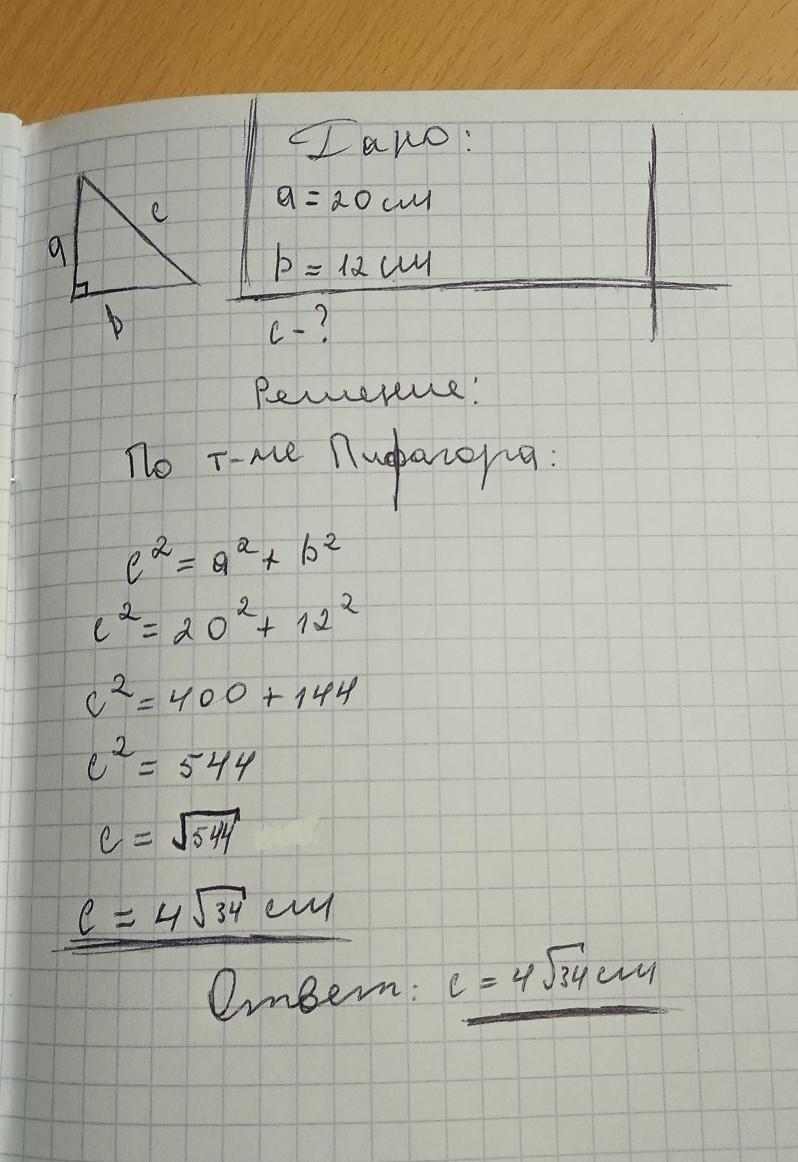 a
c
b
Дано:
a = 20 см
b = 12 см
c - ?
Решение:
По т-ме Пифагора:
c² = a² + b²
c² = 20² + 12²
c² = 400 + 144
c² = 544
c = √544
c = 4√34 см
Ответ: c = 4√34 см